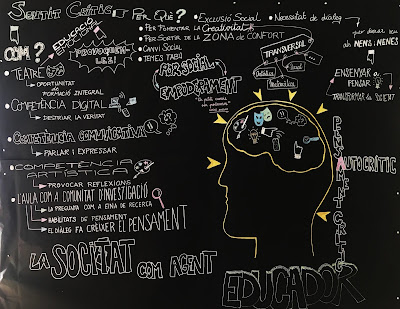 SENTIT CRÍTIC
PER QUÈ?
• EXCLUSIÓ SOCIAL
• NECESSITAT DE DIÀLEG
• PER FOMENTAR LA CREATIVITAT
• PER SORTIR DE LA ZONA DE CONFORT
• CANVI SOCIAL
• TEMES TABÚ
EDUCACIÓ
COM?
• TEATRE
OPORTUNITAT
FORMACIÓ INTEGRAL
• COMPETÈNCIA DIGITAL
DESTRIAR LA VERITAT
• COMPETÈNCIA COMUNICATIVA
PARLAR I EXPRESSAR
• COMPETÈNCIA ARTÍSTICA
PROVOCAR REFLEXIONS
• L'AULA COM A COMUNITAT D'INVESTIGACIÓ
LA PREGUNTA COM A EINA DE RECERCA
HABILITATS DE PENSAMENT
EL DIÀLEG FA CRÉIXER EL PENSAMENT
LA SOCIETAT COM AGENT
POR SOCIAL
EMPODERAMENT
TRANSVERSAL
Artística
Visual
Matemàtica
per donar veu
als NENS i NENES
ENSENYAR
PENSAR
TRANSFORMAR
PENSAMENT CRÍTIC
AUTOCRÍTIC
EDUCADOR